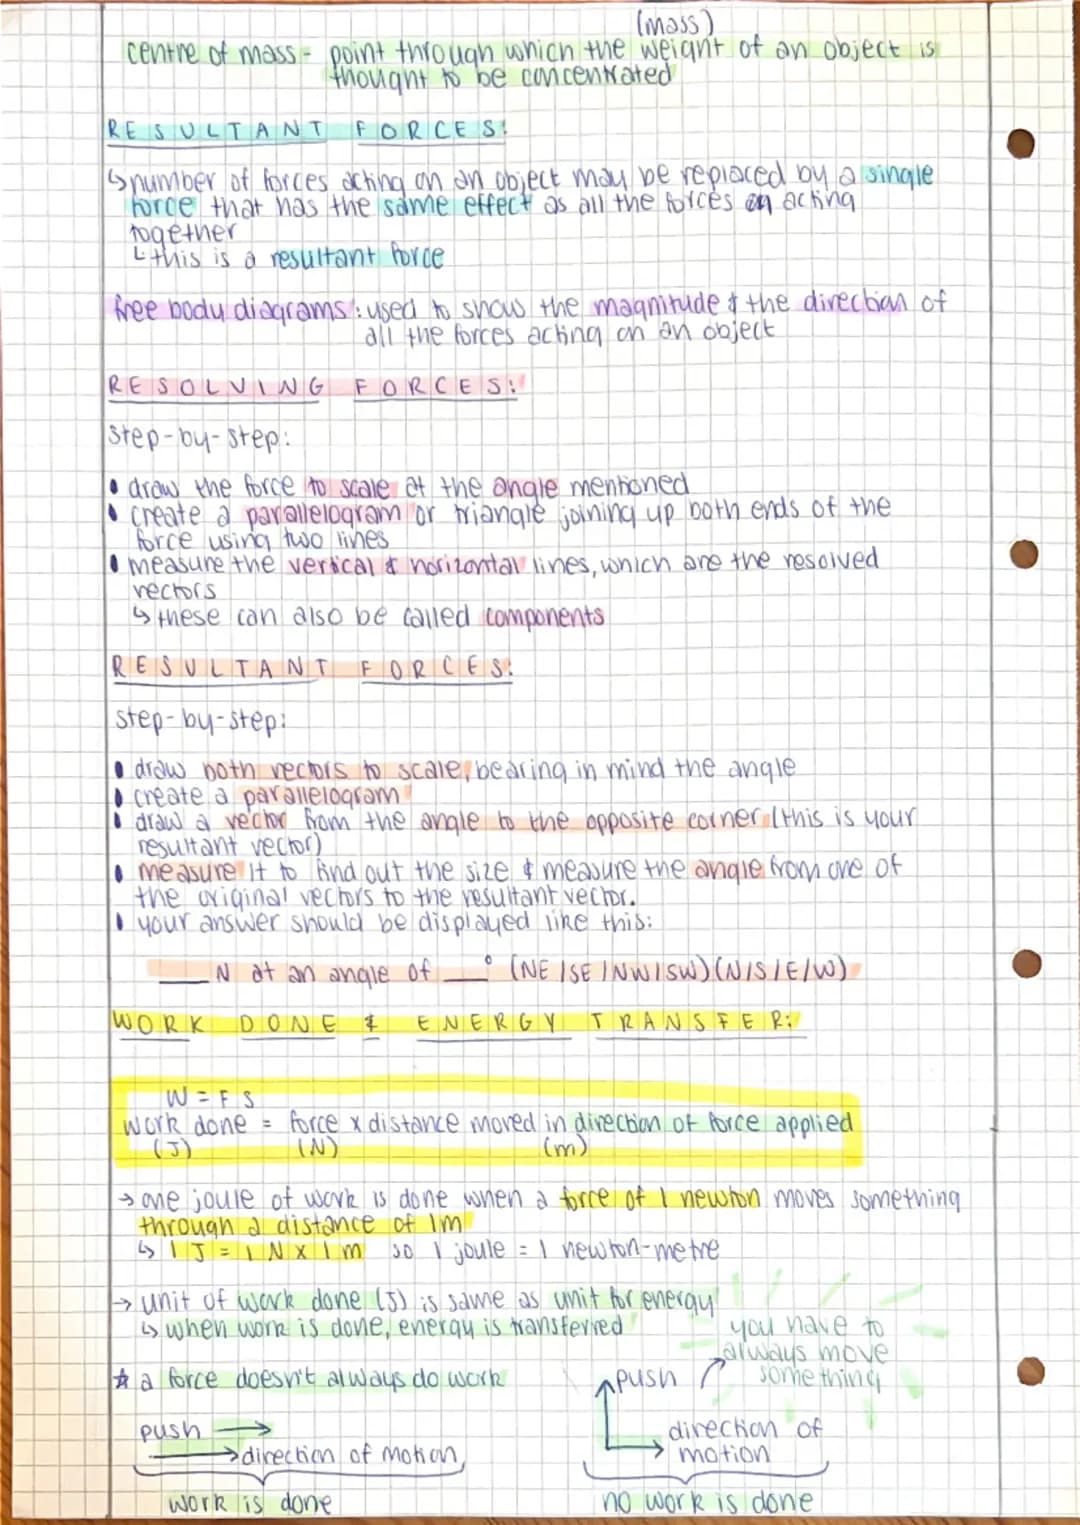 (mass)
centre of mass - point through which the weight of an object is
thought to be concentrated
RESULTANT FORCES:
↳ number of forces acting on an object may be replaced by a single
force that has the same effect as all the forces acting
together
↳ this is a resultant force
free body diagrams: used to show the magnitude & the direction of
all the forces acting on an object
RESOLVING FORCES:
step-by-step:
• draw the force to scale at the angle mentioned
• create a parallelogram or triangle joining up both ends of the
force using two lines
• measure the vertical & horizontal lines, which are the resolved
vectors
↳ these can also be called components
RESULTANT FORCES:
step-by-step:
• draw both vectors to scale, bearing in mind the angle
• create a parallelogram
• draw a vector from the angle to the opposite corner (this is your
resultant vector)
• measure it to find out the size & measure the angle from one of
the original vectors to the resultant vector.
• your answer should be displayed like this:
___ N at an angle of ___° (NE/SE/NW/SW)(N/S/E/W)
WORK DONE & ENERGY TRANSFER:
W = F S
work done = force x distance moved in direction of force applied
(J) (N) (m)
→ one joule of work is done when a force of 1 newton moves something
through a distance of 1m
↳ 1 J = 1 N x 1 m so 1 joule = 1 newton-metre
→ unit of work done (J) is same as unit for energy
↳ when work is done, energy is transferred
you have to
always move
something
☆ a force doesn't always do work
push →
→ direction of motion
work is done
push
direction of
motion
no work is done